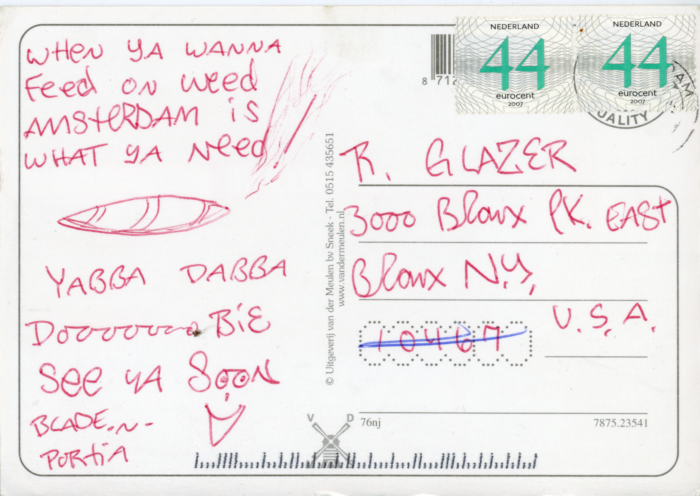 WHEN YA WANNA
FEED ON WEED
AMSTERDAM IS
WHAT YA NEED
YABBA DABBA
Dooooooo BiE
SEE YA SOON
BLADE-N-
PORTIA
© Uitgeverij van der Meulen bv Sneek - Tel. 0515 435651
www.vandermeulen.nl
8 712
NEDERLAND
44
eurocent
2007
NEDERLAND
44
eurocent
2007
DAM
UALITY
R. GLAZER
3000 BRONX PK. EAST
BRONX N.Y.
10467
U.S.A.
V D
76nj
7875.23541